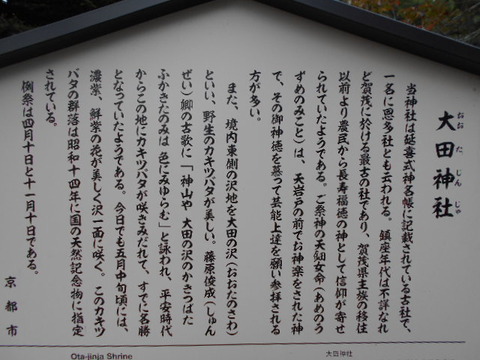 おおたじんじゃ
大田神社
当神社は延喜式神名帳に記載されている古社で、
一名に恩多社とも云われる。鎮座年代は不詳なれ
ど賀茂に於ける最古の社であり、賀茂県主族の移住
以前より農民から長寿福徳の神として信仰が寄せ
られていたようである。ご祭神の天鈿女命（あめのう
ずめのみこと）は、天岩戸の前でお神楽をされた神
で、その御神徳を慕って芸能上達を願い参拝される
方が多い。
また、境内東側の沢地を大田の沢（おおたのさわ）
といい、野生のカキツバタが美しい。藤原俊成（しゅん
ぜい）卿の古歌に「神山や 大田の沢のかきつばた
ふかきたのみは 色にみゆらむ」と詠われ、平安時代
からこの地にカキツバタが咲きみだれて、すでに名勝
となっていたようである。今日でも五月中旬頃には、
濃紫、鮮紫の花が美しく沢一面に咲く。このカキツ
バタの群落は昭和十四年に国の天然記念物に指定
されている。
例祭は四月十日と十一月十日である。
京都市
Ota-jinja Shrine
大田神社